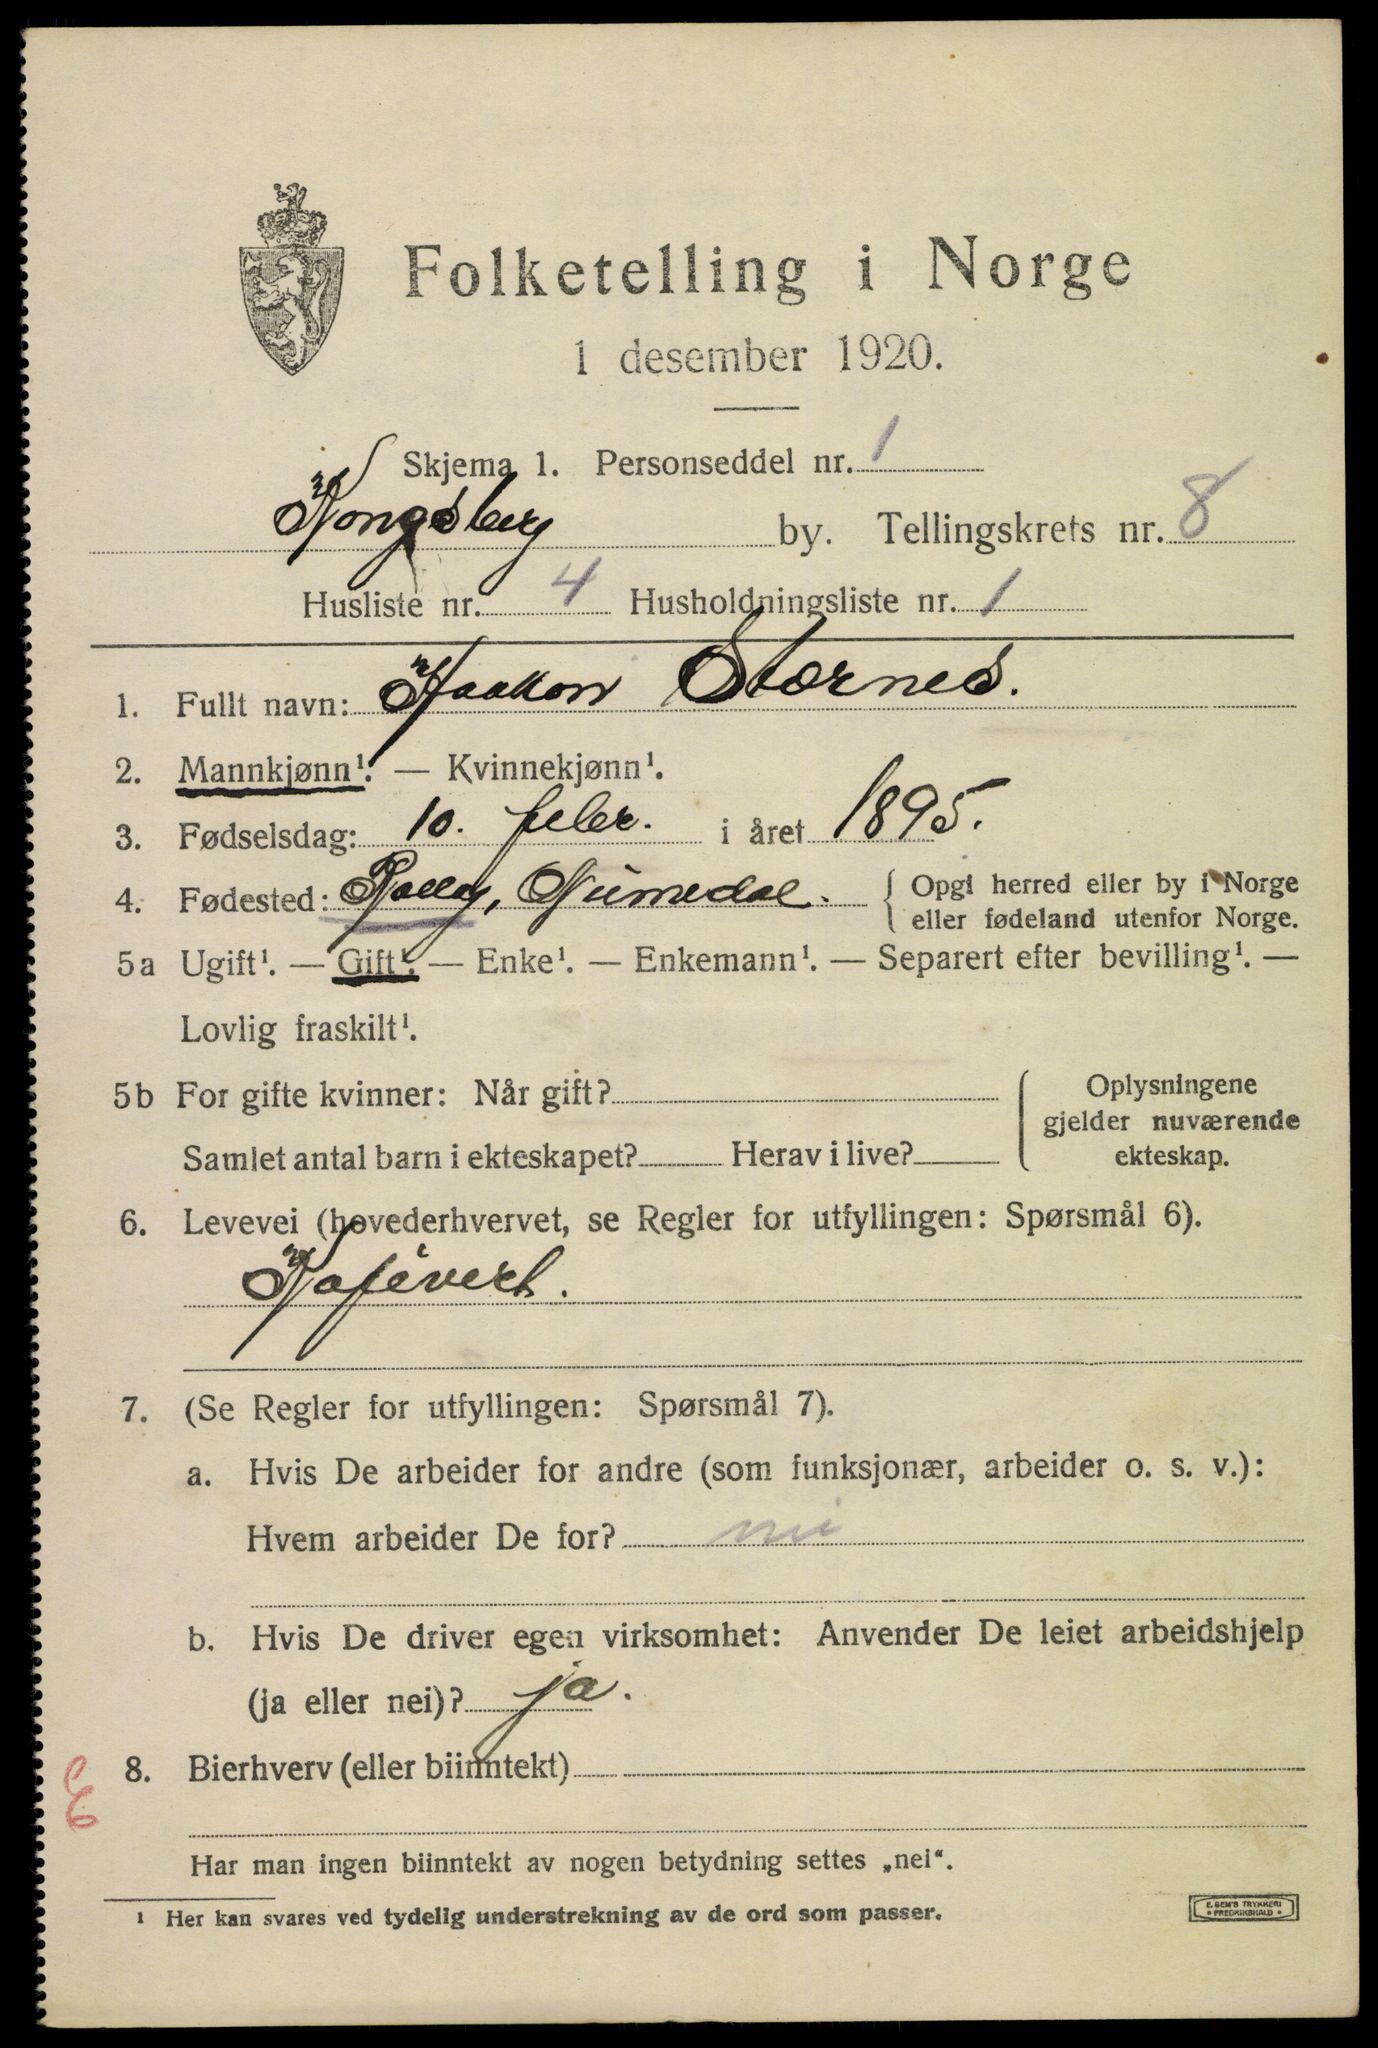 Folketelling i Norge
1 desember 1920.
Skjema 1. Personseddel nr. 1
Kongsberg by. Tellingskrets nr. 8
Husliste nr. 4 Husholdningsliste nr. 1
1. Fullt navn: Haakon Stærnes.
2. Mannkjønn¹. — Kvinnekjønn¹.
3. Fødselsdag: 10. febr. i året 1895.
4. Fødested: Rollag, Numedal. { Opgi herred eller by i Norge
eller fødeland utenfor Norge.
5a Ugift¹. — Gift¹. — Enke¹. — Enkemann¹. — Separert efter bevilling¹. —
Lovlig fraskilt¹.
5b For gifte kvinner: Når gift? { Oplysningene
gjelder nuværende
Samlet antal barn i ekteskapet? Herav i live? ekteskap.
6. Levevei (hovederhvervet, se Regler for utfyllingen: Spørsmål 6).
Kafévert.
7. (Se Regler for utfyllingen: Spørsmål 7).
a. Hvis De arbeider for andre (som funksjonær, arbeider o. s. v.):
Hvem arbeider De for?
b. Hvis De driver egen virksomhet: Anvender De leiet arbeidshjelp
(ja eller nei)? ja.
8. Bierhverv (eller biinntekt)
Har man ingen biinntekt av nogen betydning settes „nei“.
¹ Her kan svares ved tydelig understrekning av de ord som passer.
E. SEM'S TRYKKERI
• FREDRIKSHALD •